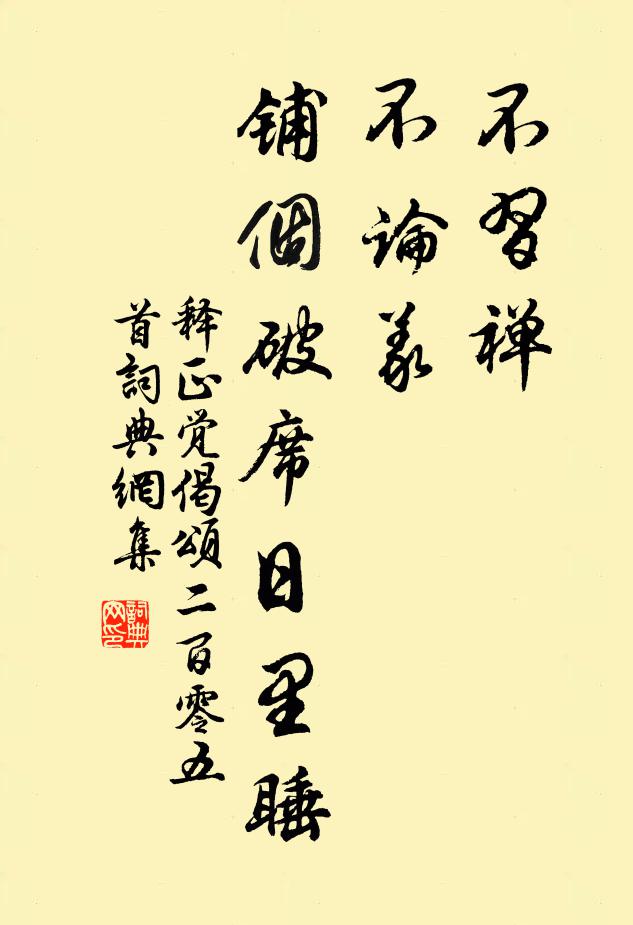 不習禅
不論義
铺個破席日里睡
释正觉偈頌二百零五
首詞典網集
詞典
网印